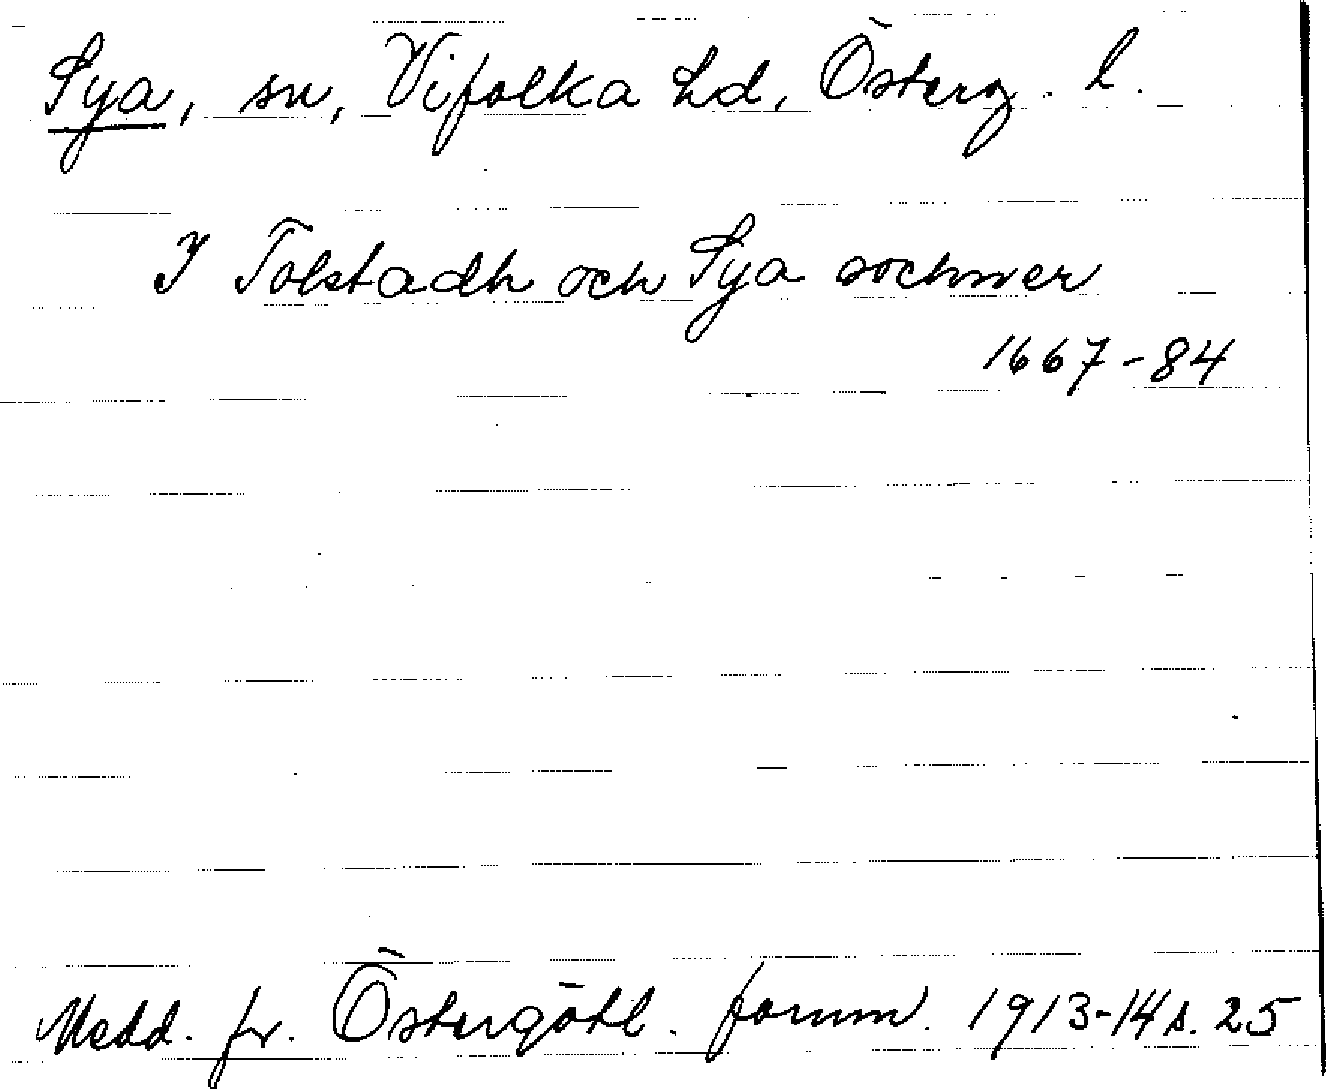 Sya, sn, Vifolka hd, Österg. l.
I Tolstadh och Sya sochner
1667-84
Medd. fr. Östergötl. fornm. 1913-14 s. 25